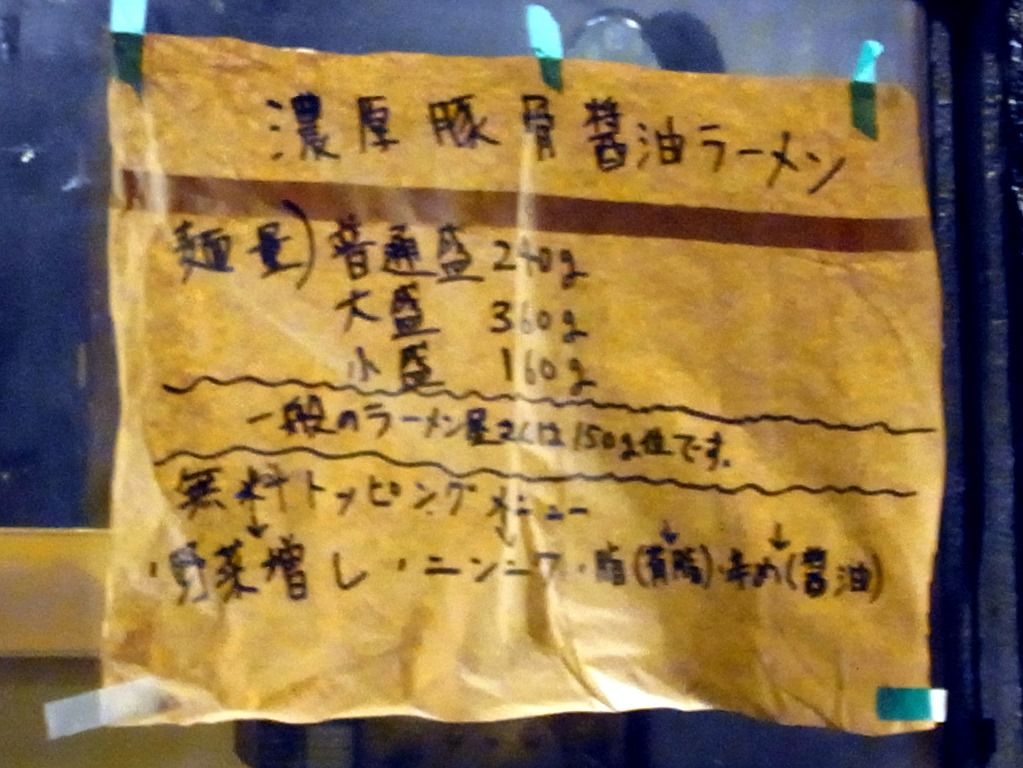 濃厚豚骨醤油ラーメン
麺量)普通盛 240g
大盛 360g
小盛 160g
一般のラーメン屋さんは150g位です。
無料トッピングメニュー
・野菜増し・ニンニク・脂(背脂)・辛め(醤油)